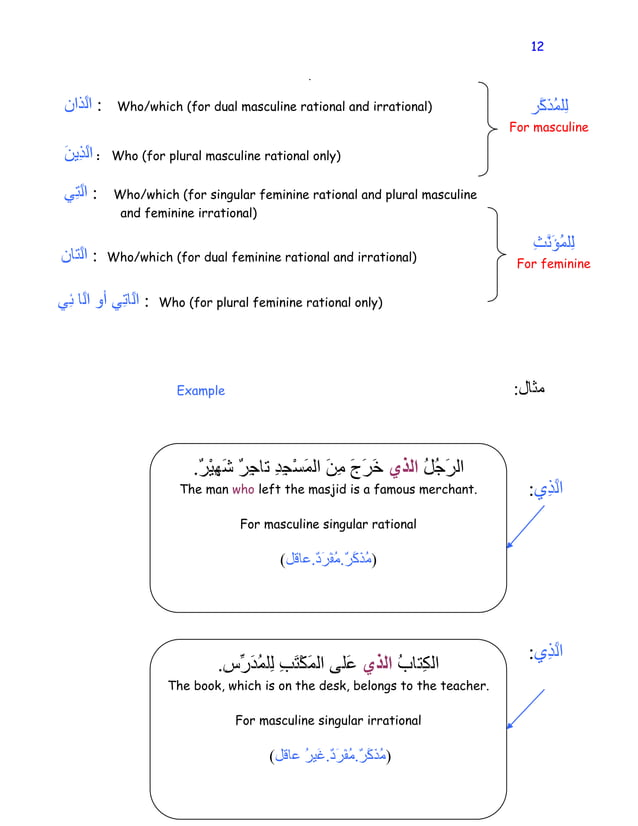 12
.
الَّذان : Who/which (for dual masculine rational and irrational)
لِلمُذكَّر
For masculine
الَّذِينَ : Who (for plural masculine rational only)
الَّتِي : Who/which (for singular feminine rational and plural masculine
and feminine irrational)
لِلمُؤنَّثِ
For feminine
الَّتان : Who/which (for dual feminine rational and irrational)
الَّاتِي أو الَّا ئِي : Who (for plural feminine rational only)
Example
مثال:
الرَجُلُ الذي خَرَجَ مِنَ المَسْجِدِ تاجِرٌ شَهِيْرٌ.
The man who left the masjid is a famous merchant.
For masculine singular rational
(مُذكَّرٌ.مُفْرَدٌ.عاقل)
الَّذِي:
الكِتابُ الذي عَلى المَكْتَبِ لِلمُدَرِّس.
The book, which is on the desk, belongs to the teacher.
For masculine singular irrational
(مُذكَّرٌ.مُفْرَدٌ.غَيرُ عاقل)
الَّذِي: